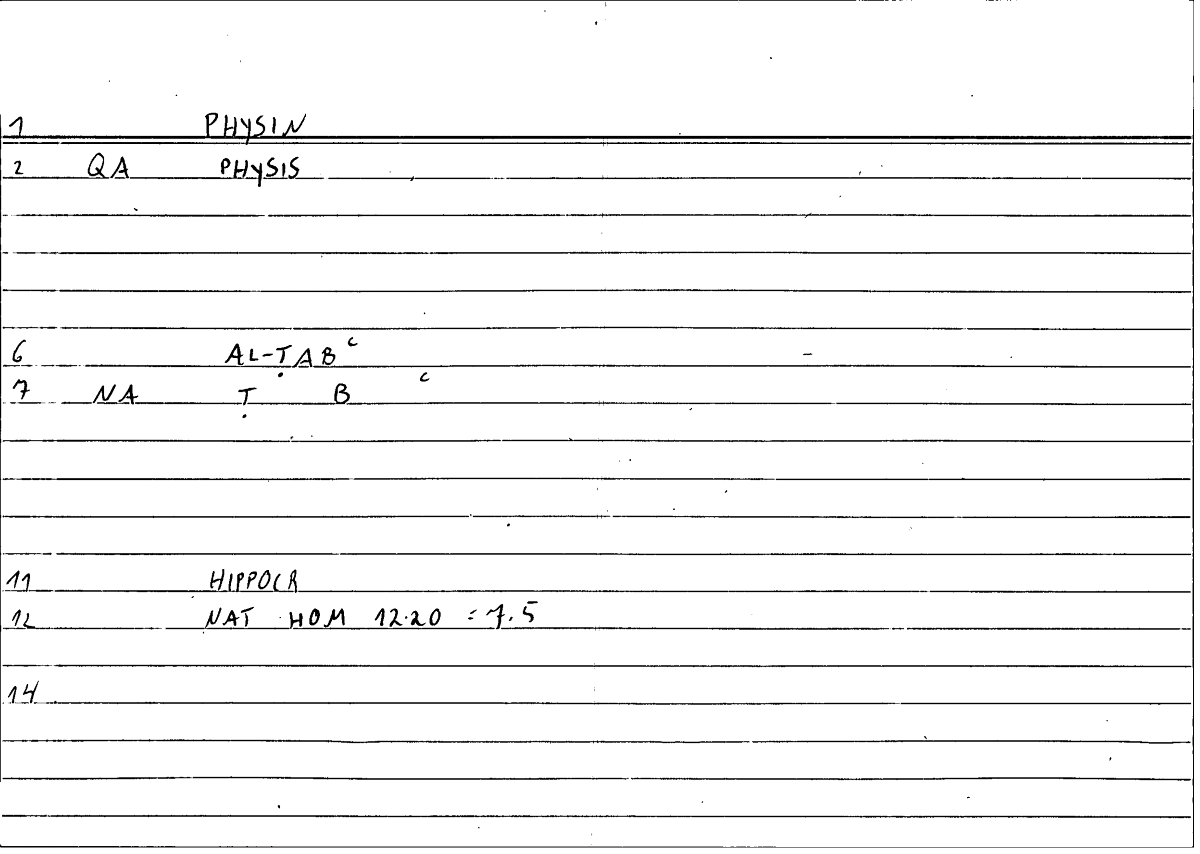 1 PHYSIN
2 QA PHYSIS
6 AL-ṬABʿ
7 NA Ṭ B ʿ
11 HIPPOCR
12 NAT HOM 12.20 = 7.5
14